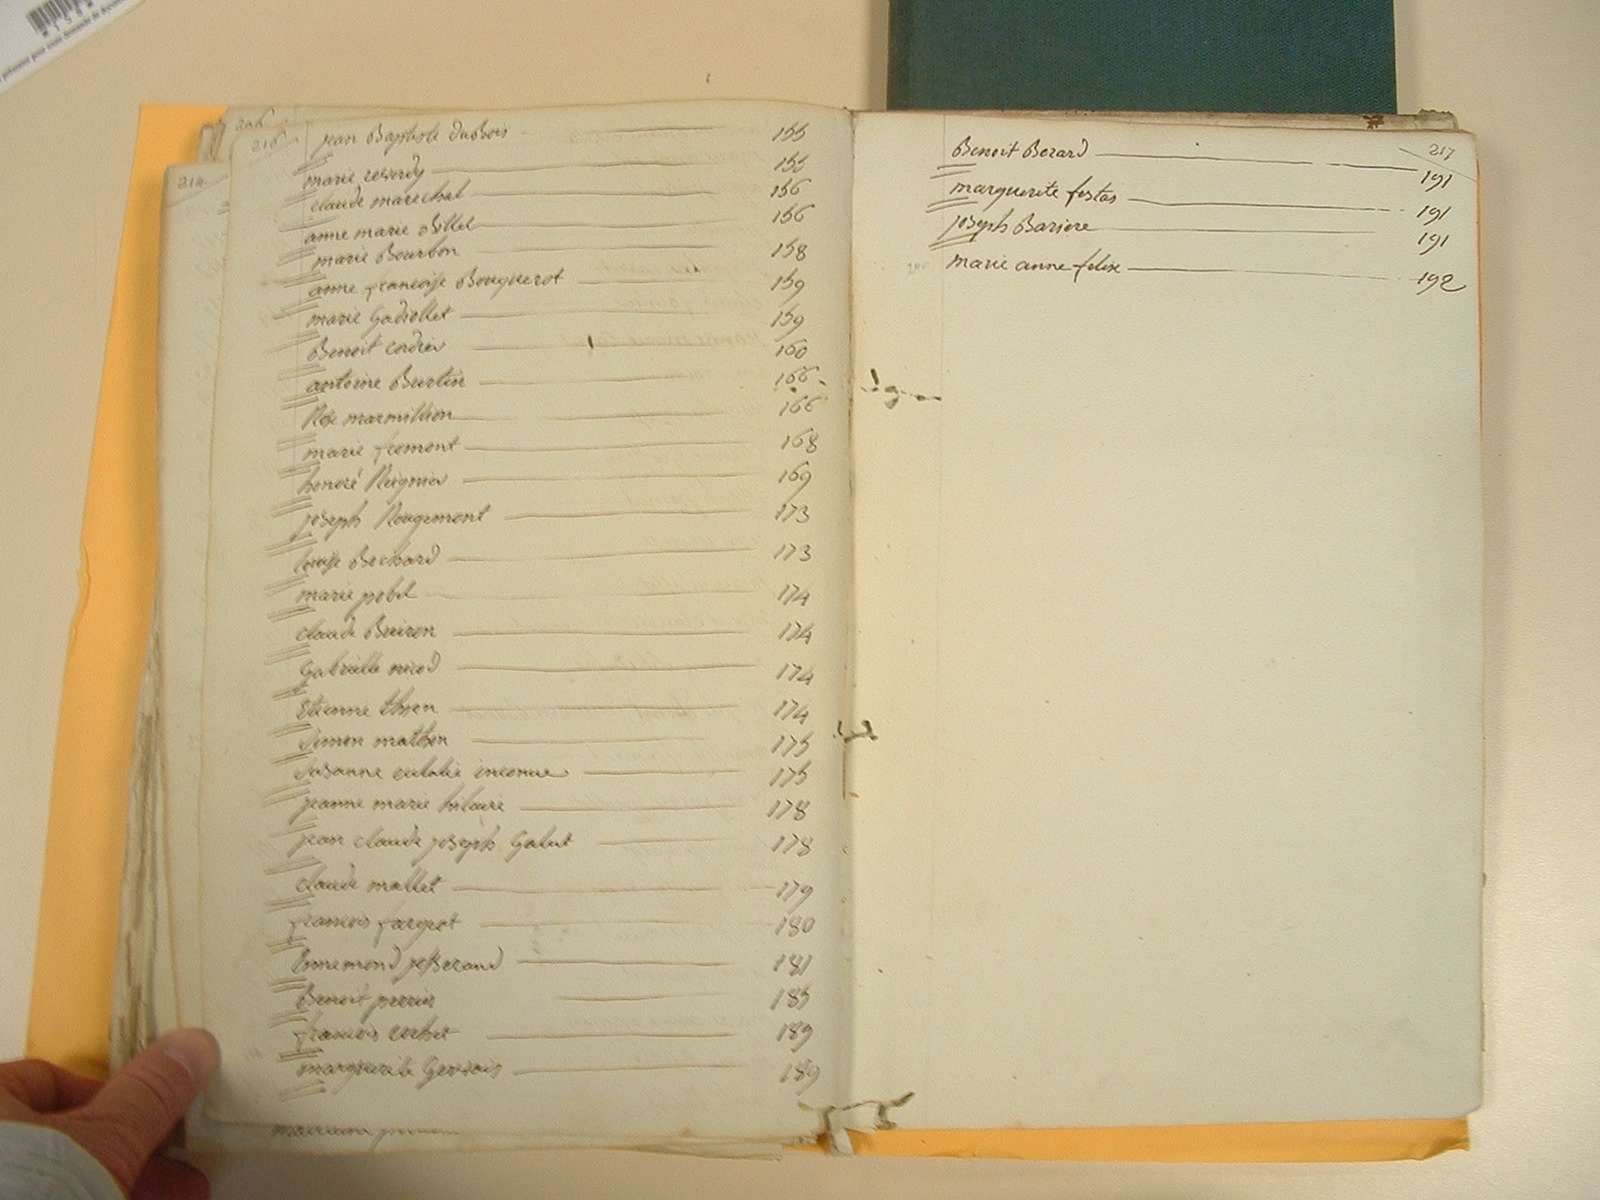 216
jean Baptiste duBois 155
marie 155
claude marechal 156
anne marie Billet 156
marie Bourbon 158
anne francoise Bouquerot 159
marie Gadiollet 159
Benoit cordier 160
antoine Burtin 166
Rose marmillion 166
marie fremont 168
honoré Reignier 169
joseph Rougemont 173
louise Bochard 173
marie pobel 174
claude Buiron 174
Gabrielle nicod 174
Etienne thien 174
Simon mathon 175
Susanne eulalie inconue 175
jeanne marie hilaire 178
jean claude joseph Galut 178
claude mallet 179
francois fargeot 180
Ennemond josserand 181
Benoit perrier 185
francois corbet 189
marguerite Gervais 189
217
Benoit Berard 191
marguerite festas 191
joseph Bariere 191
marie anne felix 192
214